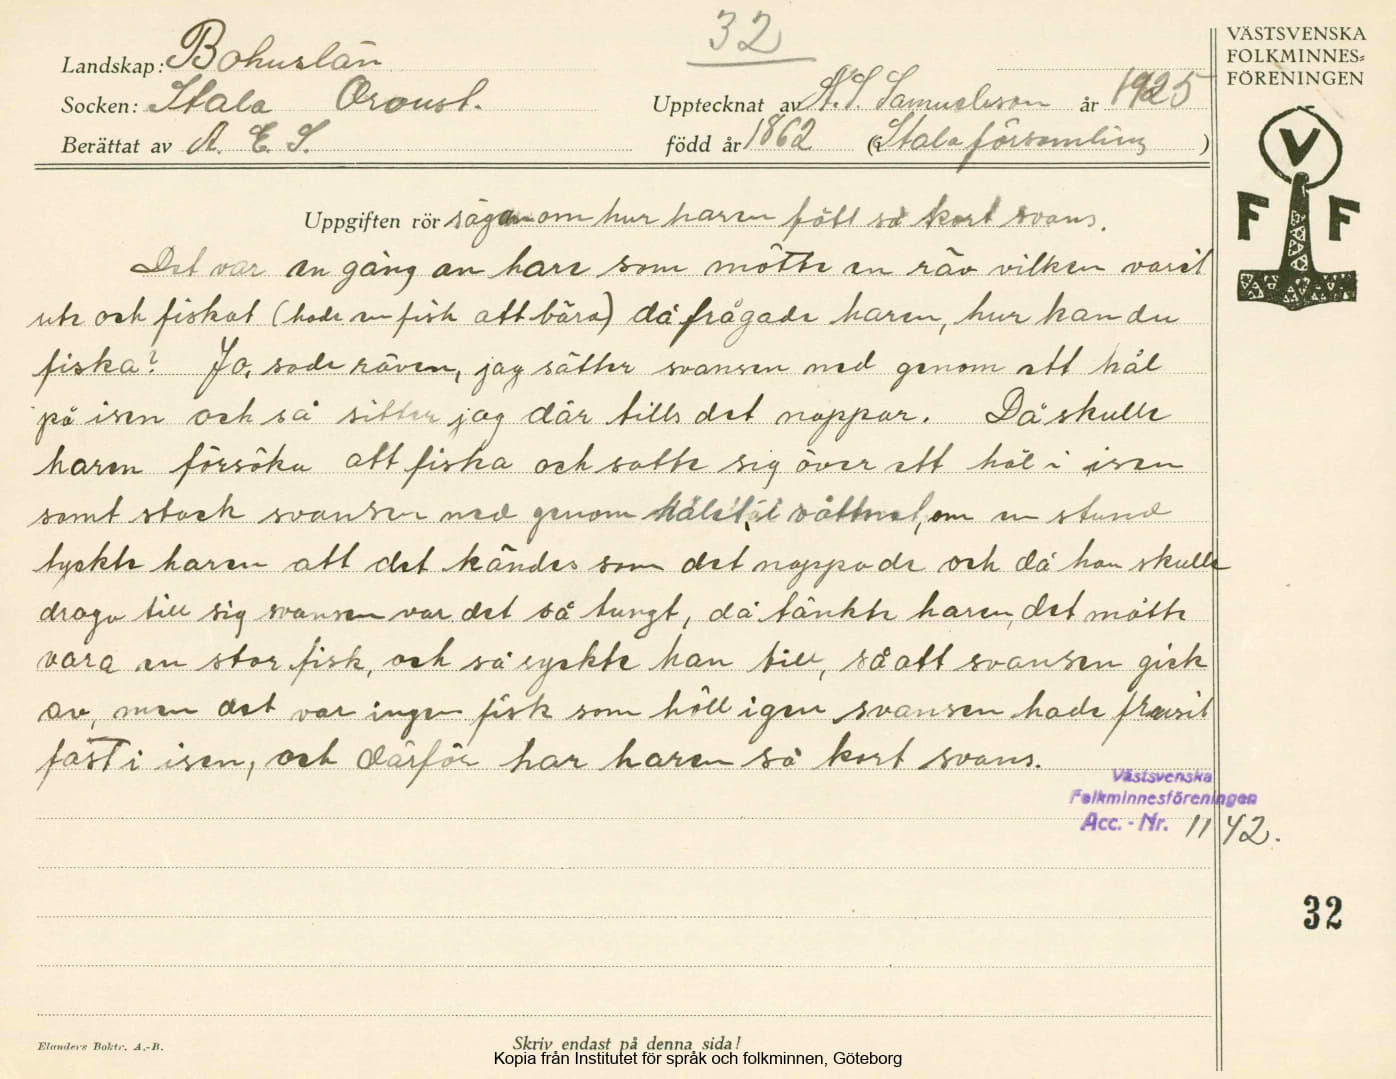 32
VÄSTSVENSKA
FOLKMINNES=
FÖRENINGEN
Landskap: Bohuslän
Socken: Stala Oroust. Upptecknat av N. S. Samuelsson år 1925
Berättat av A. E. S. född år 1862 (i Stala församling )
V
F F
Uppgiften rör sägen om hur haren fått så kort svans.
Det var en gång en hare som mötte en räv vilken varit
ute och fiskat (hade en fisk att bära) då frågade haren, hur kan du
fiska? Jo, sade räven, jag sätter svansen ned genom ett hål
på isen och så sitter jag där tills det nappar. Då skulle
haren försöka att fiska och satte sig över ett hål i isen
samt stack svansen ned genom hålet, i vattnet, om en stund
tyckte haren att det kändes som det nappade och då han skulle
draga till sig svansen var det så tungt, då tänkte haren, det måtte
vara en stor fisk, och så ryckte han till, så att svansen gick
av, men det var ingen fisk som höll igen svansen hade frusit
fast i isen, och därför har haren så kort svans.
Västsvenska
Folkminnesföreningen
Acc. - Nr. 1142.
32
Elanders Boktr. A.-B.
Skriv endast på denna sida!
Kopia från Institutet för språk och folkminnen, Göteborg